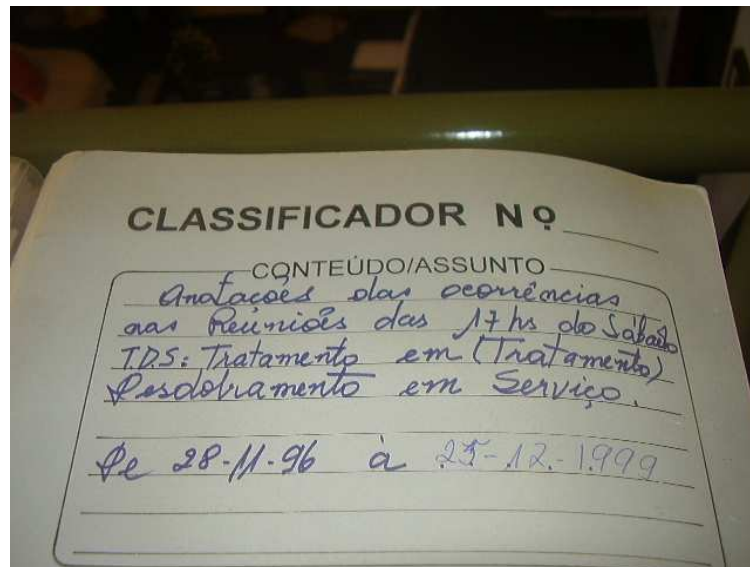 CLASSIFICADOR Nº
CONTEÚDO/ASSUNTO
Anotações das ocorrências
nas Reuniões das 17 hs do Sábado
T.D.S: Tratamento em (Tratamento)
Desdobramento em Serviço.
De 28-11-96 à 25-12-1999